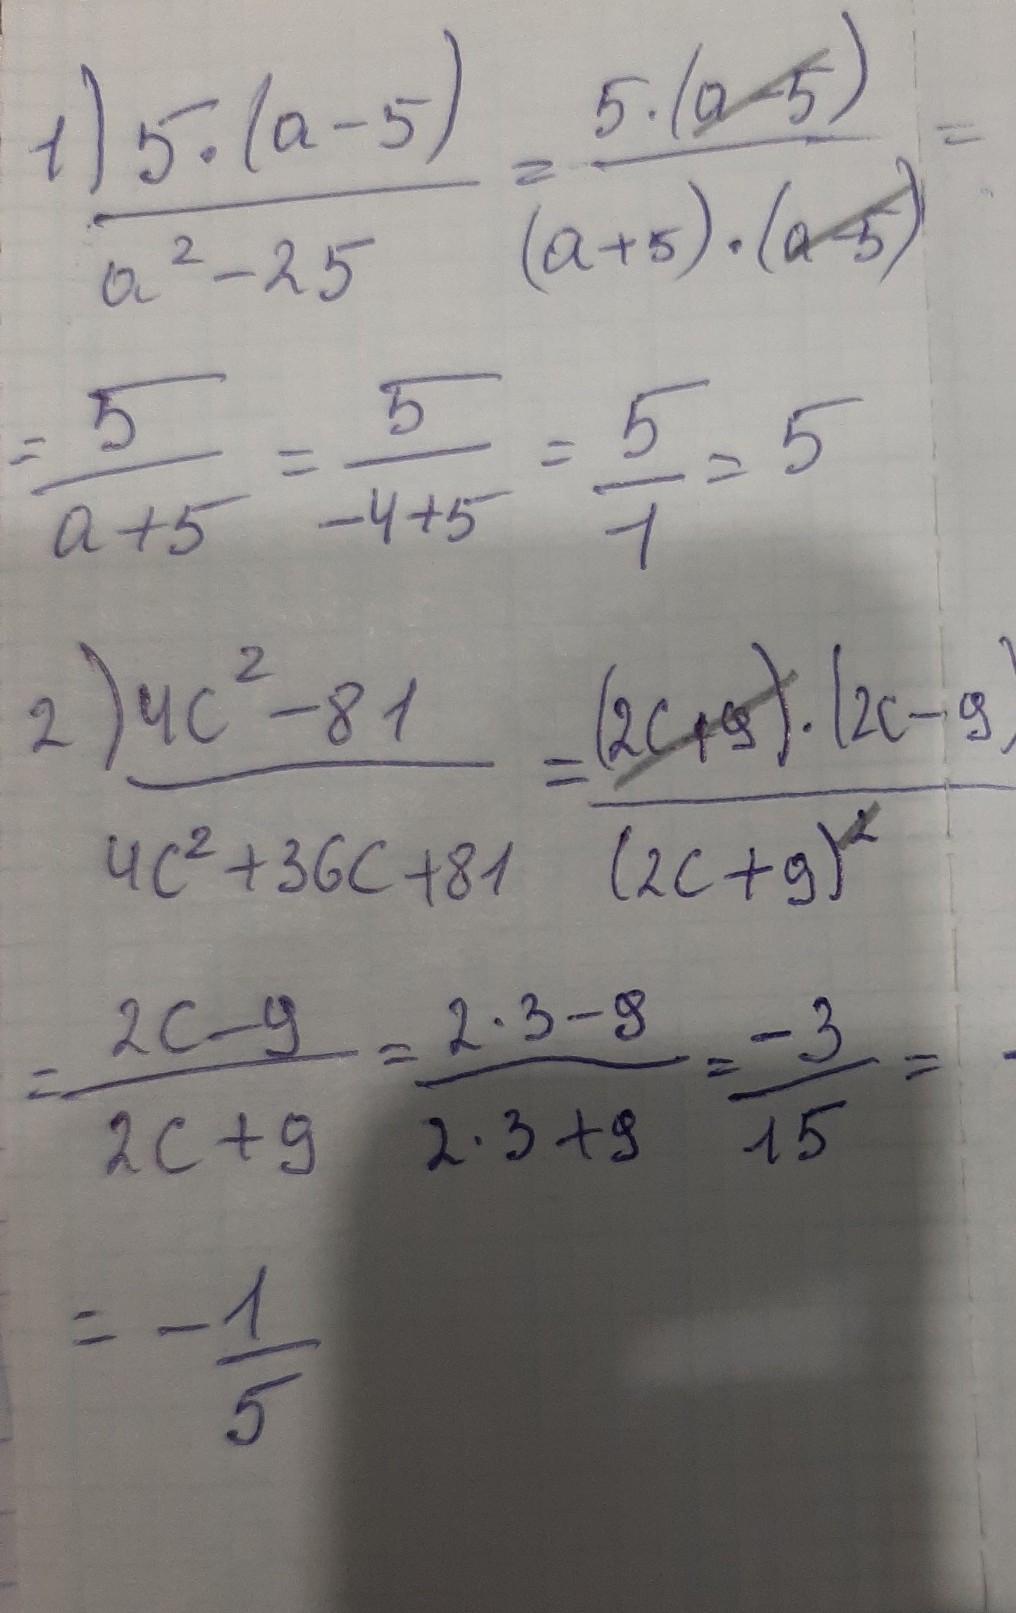 1) 5·(a-5)/a²-25 = 5·(a-5)/(a+5)·(a-5) =
= 5/a+5 = 5/-4+5 = 5/1 = 5
2) 4c²-81/4c²+36c+81 = (2c+9)·(2c-9)/(2c+9)²
= 2c-9/2c+9 = 2·3-9/2·3+9 = -3/15 = -
= -1/5